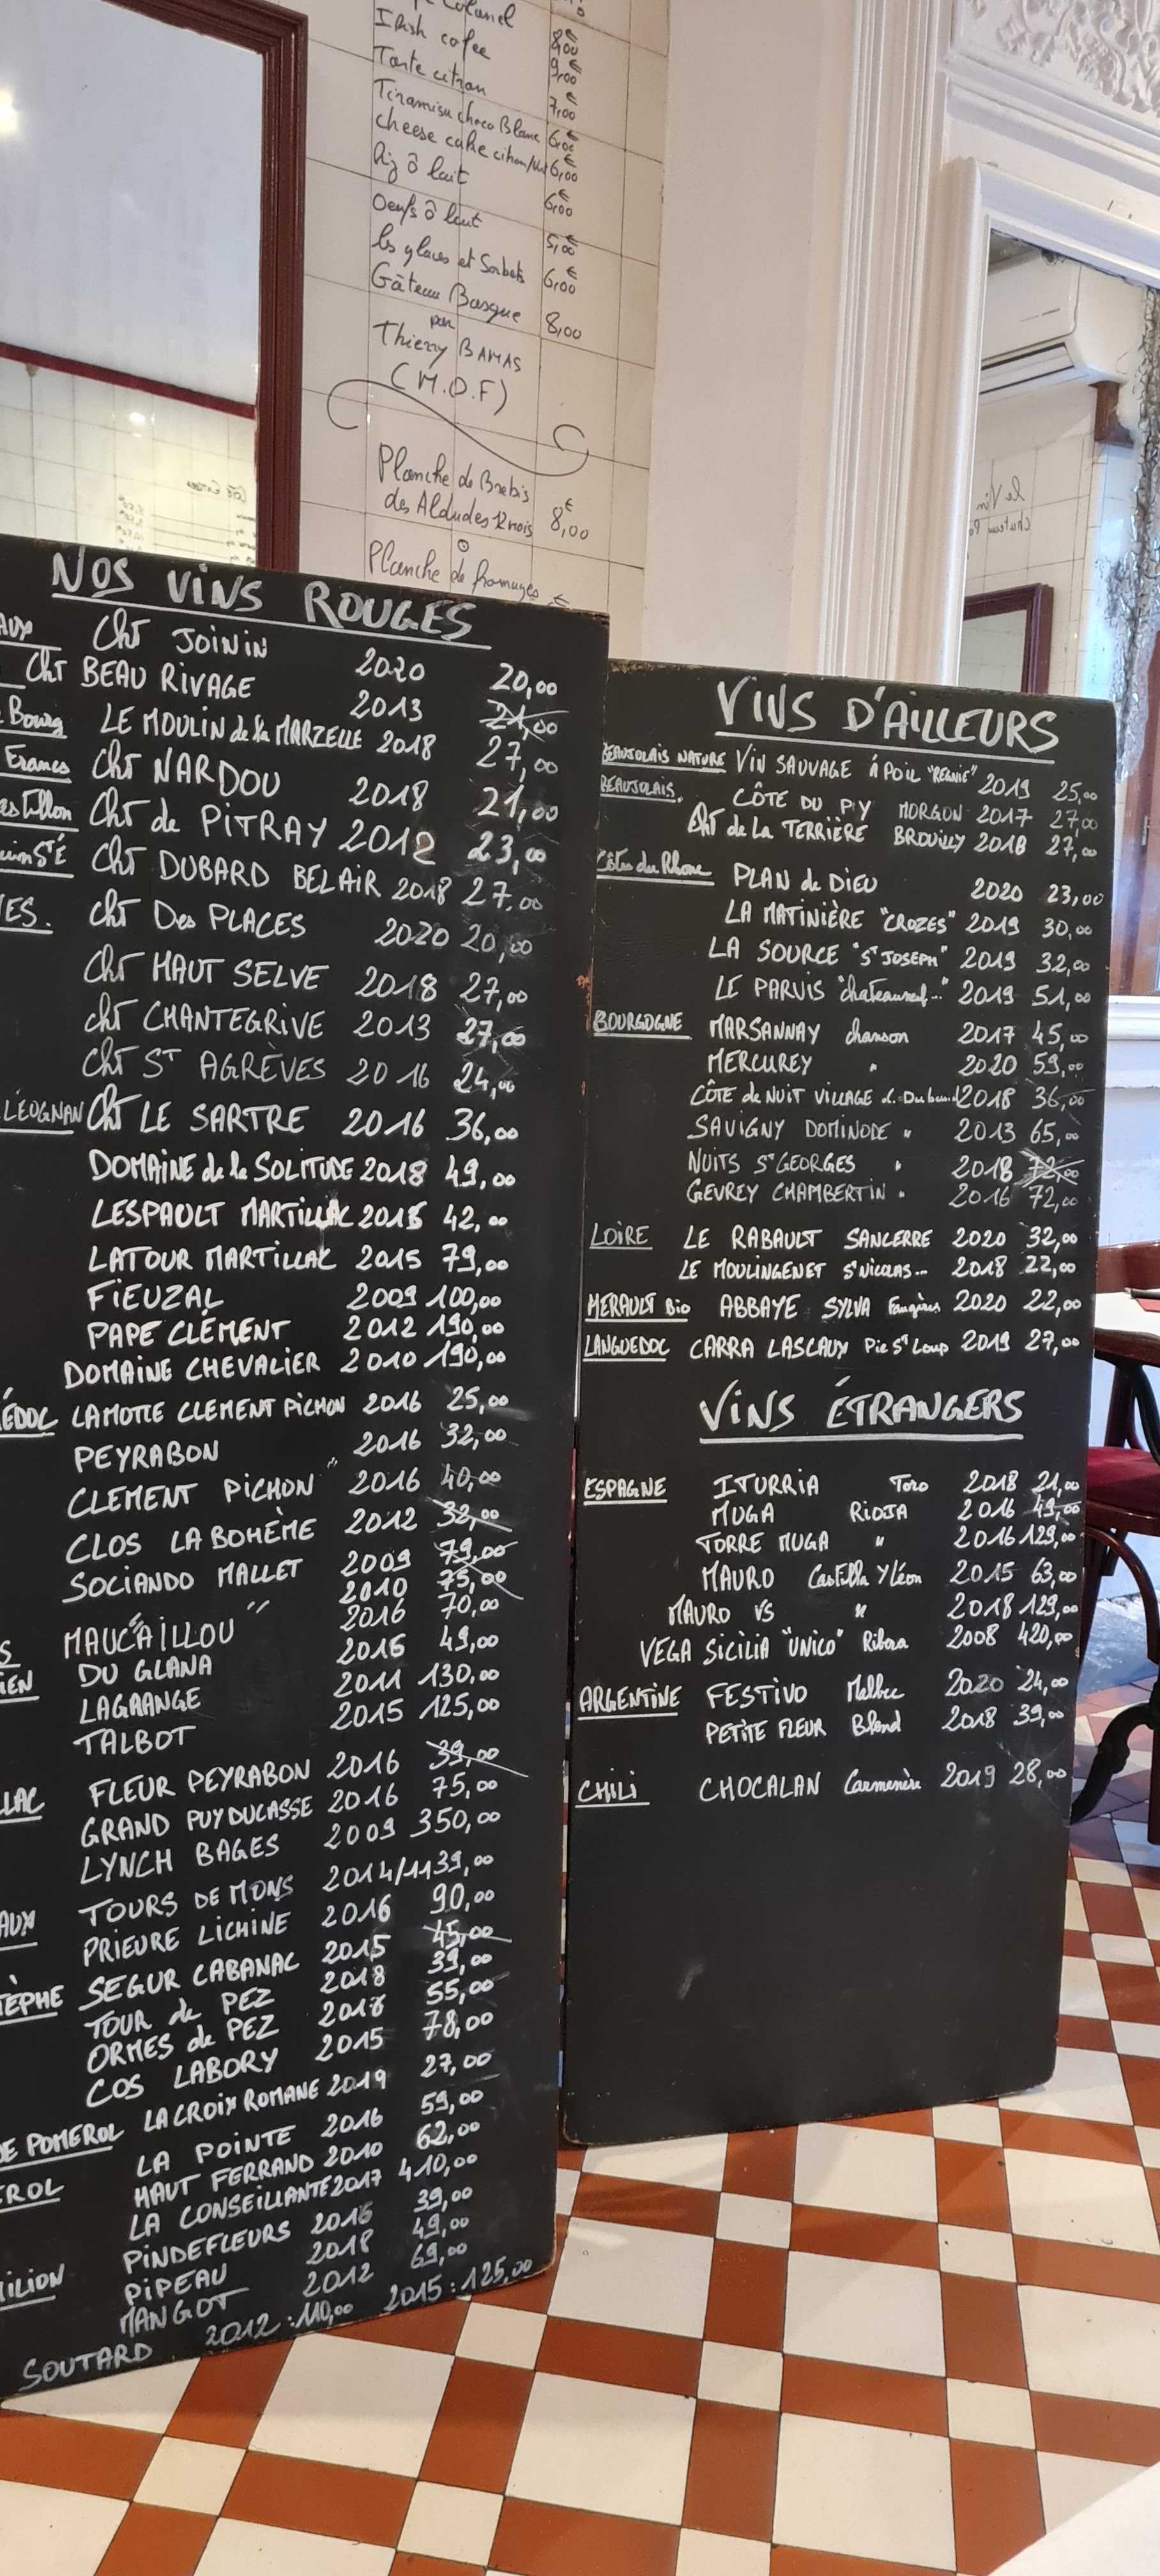 Colonel
Irish cofee 8,00€
Tarte citron 9,00€
7,00€
Tiramisu choco Blanc 6,00€
cheese cake citron 6,00€
Riz ô lait 6,00
Oeufs ô lait 5,00€
les glaces et Sorbets 6,00€
Gâteau Basque 8,00
par
Thierry BAMAS
(M.O.F)
Planche de Brebis
des Aldudes 12 mois 8,00€
Planche de fromages
NOS VINS ROUGES
AUX Cht JOININ 2020 20,00
Cht BEAU RIVAGE 2013 21,00
Bourg LE MOULIN de la MARZELLE 2018 27,00
Francs Cht NARDOU 2018 21,00
Cht de PITRAY 2018 23,00
Cht DUBARD BELAIR 2018 27,00
ES. Cht Des PLACES 2020 20,00
Cht HAUT SELVE 2018 27,00
Cht CHANTEGRIVE 2013 27,00
Cht ST AGRÈVES 2016 24,00
LÉOGNAN Cht LE SARTRE 2016 36,00
DOMAINE de la SOLITUDE 2018 49,00
LESPAULT MARTILLAC 2015 42,00
LATOUR MARTILLAC 2015 79,00
FIEUZAL 2009 100,00
PAPE CLÉMENT 2012 190,00
DOMAINE CHEVALIER 2010 190,00
ÉDOC LAMOTTE CLEMENT PICHON 2016 25,00
PEYRABON 2016 32,00
CLEMENT PICHON " 2016 40,00
CLOS LA BOHÈME 2012 32,00
SOCIANDO MALLET 2009 79,00
" 2010 75,00
S MAUCAILLOU 2016 70,00
IEN DU GLANA 2016 49,00
LAGRANGE 2011 130,00
TALBOT 2015 125,00
LLAC FLEUR PEYRABON 2016 39,00
GRAND PUY DUCASSE 2016 75,00
LYNCH BAGES 2009 350,00
AUX TOURS DE MONS 2014/11 39,00
PRIEURE LICHINE 2016 90,00
TÈPHE SEGUR CABANAC 2015 45,00
TOUR de PEZ 2018 39,00
ORMES de PEZ 2018 55,00
COS LABORY 2015 78,00
DE POMEROL LA CROIX ROMANE 2019 27,00
EROL LA POINTE 2016 59,00
HAUT FERRAND 2010 62,00
LA CONSEILLANTE 2017 410,00
MILION PINDEFLEURS 2016 39,00
PIPEAU 2018 49,00
MANGOT 2012 69,00
SOUTARD 2012 : 110,00 2015 : 125,00
VINS D'AILLEURS
BEAUJOLAIS NATURE VIN SAUVAGE À POIL "REGNIÉ" 2019 25,00
BEAUJOLAIS. CÔTE DU PY MORGON 2017 27,00
Cht de LA TERRIÈRE BROUILLY 2018 27,00
Côtes du Rhone PLAN de DIEU 2020 23,00
LA MATINIÈRE "CROZES" 2019 30,00
LA SOURCE "ST JOSEPH" 2019 32,00
LE PARVIS "chateauneuf..." 2019 51,00
BOURGOGNE MARSANNAY chanson 2017 45,00
MERCUREY " 2020 59,00
CÔTE de NUIT VILLAGE 2018 36,00
SAVIGNY DOMINODE " 2013 65,00
NUITS ST GEORGES " 2018 72,00
GEVREY CHAMBERTIN " 2016 72,00
LOIRE LE RABAULT SANCERRE 2020 32,00
LE MOULINGENET ST NICOLAS... 2018 22,00
HERAULT Bio ABBAYE SYLVA Faugères 2020 22,00
LANGUEDOC CARRA LASCAUX Pic St Loup 2019 27,00
VINS ÉTRANGERS
ESPAGNE ITURRIA Toro 2018 21,00
MUGA RIOJA 2016 49,00
TORRE MUGA " 2016 129,00
MAURO Castilla Y Léon 2015 63,00
MAURO VS " 2018 129,00
VEGA SICILIA "UNICO" Ribera 2008 420,00
ARGENTINE FESTIVO Malbec 2020 24,00
PETITE FLEUR Blend 2018 39,00
CHILI CHOCALAN Carmenère 2019 28,00